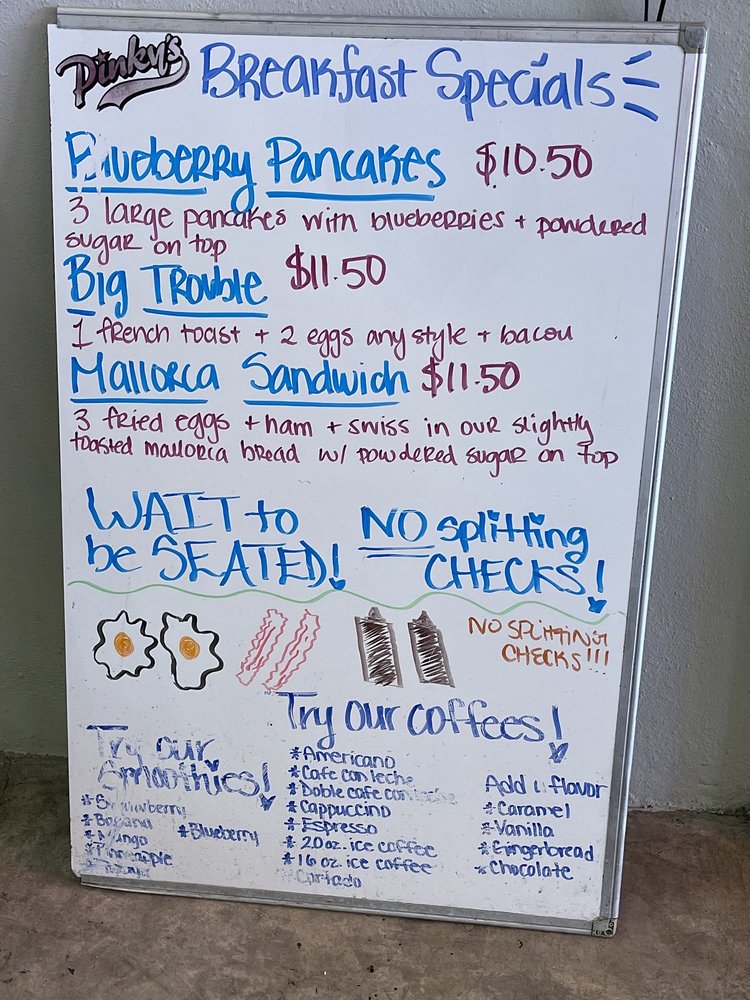 Pinky's
Breakfast Specials
Blueberry Pancakes $10.50
3 large pancakes with blueberries + powdered
sugar on top
Big Trouble $11.50
1 french toast + 2 eggs any style + bacon
Mallorca Sandwich $11.50
3 fried eggs + ham + swiss in our slightly
toasted mallorca bread w/ powdered sugar on top
WAIT to
be SEATED!
NO splitting
CHECKS!
NO SPLITTING
CHECKS!!!
Try our
Smoothies!
*Strawberry
*Banana
*Mango
*Pineapple
*Blueberry
Try our coffees!
*Americano
*Cafe con leche
*Doble cafe con leche
*Cappuccino
*Espresso
*20oz. ice coffee
*16 oz. ice coffee
Cortado
Add a flavor
*Caramel
*Vanilla
*Gingerbread
*Chocolate